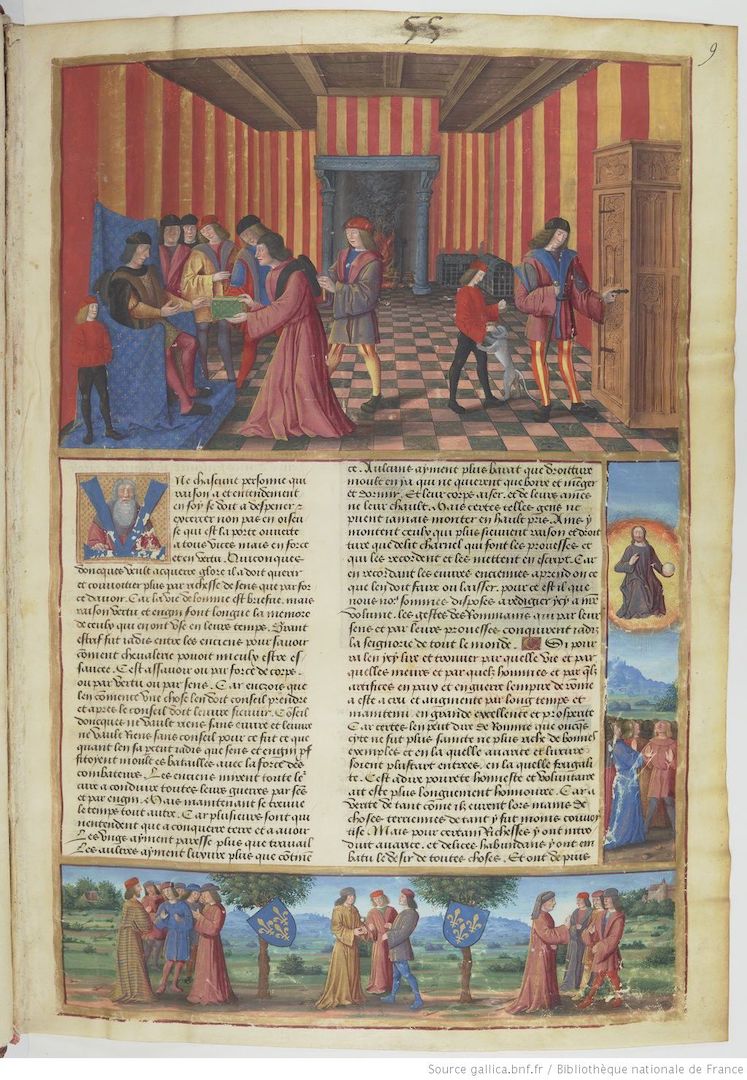 55
9
Ne chascune personne qui
raison a et entendement
en soy se doit a despener
excercer non pas en oiseu
se qui est la porte ouverte
a tous vices mais en force
et en vertu. Quiconques
doncques veult acquerre glore il a doit querir
et couvoitier plus par richesse de sens que par for
ce davoir. Car la vie de lomme est briefue. mais
raison vertu et engin font longue la memore
de ceulx qui en ont use en leure temps. Grant
estrif fut iadis entre les enciens pour savoir
coment chevalerie povoit mieulx estre es
saucee. Cest assavoir ou par force de corps.
ou par vertu ou par sens. Car encois que
len comence une chose len doit conseil prendre
et apres le conseil doit leuvre
doncques ne vault riens sans euvre et leuvre
ne vault riens sans conseil pour ce fut ce que
quant len saperceut iadis que sens et engin
fitoient moult es batailles avec la force des
combatens. Les enciens mirent toute
cure a conduire toutes leurs guerres par sens
et par engin. Mais maintenant se treuve
le temps tout autre. Car pluseurs sont qui
nentendent que a conquerre terre et a avoir
Les ungs ayment paresse plus que travail
Les aultres ayment luxure plus que
ce. Aulcuns ayment plus barat que droicture
moult en ya qui ne quierent que boire et menger
et dormir. Et leur corps aiser. et de leurs ames
ne leur chault. Mais certes telles gens ne
puent iamais monter en hault pris. Ains y
montent ceulx qui plus suivent raison et droit
ture que delit charnel qui font les prouesses. et
qui les recordent et les mettent en escript. Car
en recordant les euvres enciennes aprend on ce
que len doit faire ou laisser. pour ce est il que
nous nos sommes disposes a rediger ycy a
volume. les gestes des Rommains qui par leur
sens et par leure prouesses conquirent iadiz
la seignorie de tout le monde. Si pour
ra len ycy lire et trouver par quelle vie et par
quelles meurs et par quelz hommes et par qlz
artifices en paix et en guerre lempire de rome
a este creu et augmente par long temps et
maintenu en grande excellence et prosperite
Car certes len peut dire que Romme
cite ne fut plus sainte ne plus riche de bonnes
exemples et en la quelle avarice et luxure
soient plus tart entrees. en la quelle frugalite
Cest a dire pourete honneste et voluntaire
ait este plus longuement honnouree. Car a
verite de tant come ilz eurent lors mains de
choses terriennes de tant y fut moins convoi
tise. Mais pour certain Richesses y ont intro
duit avarice. et delices habundans y ont en
batu le desir de toutes choses. Et ont de puis
Source gallica.bnf.fr / Bibliothèque nationale de France